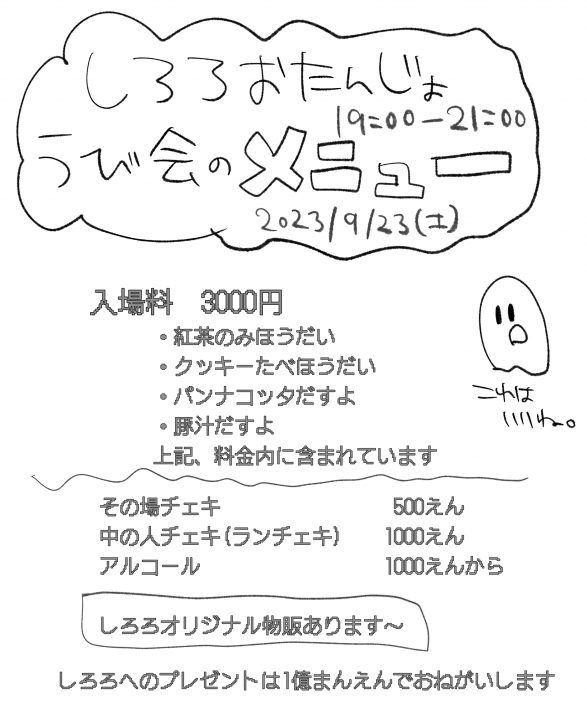 しろろおたんじょ
19:00-21:00
うび会のメニュー
2023/9/23(土)
入場料 3000円
・紅茶のみほうだい
・クッキーたべほうだい
・パンナコッタだすよ
・豚汁だすよ
上記、料金内に含まれています
これは
いいね。
その場チェキ 500えん
中の人チェキ(ランチェキ) 1000えん
アルコール 1000えんから
しろろオリジナル物販あります～
しろろへのプレゼントは1億まんえんでおねがいします